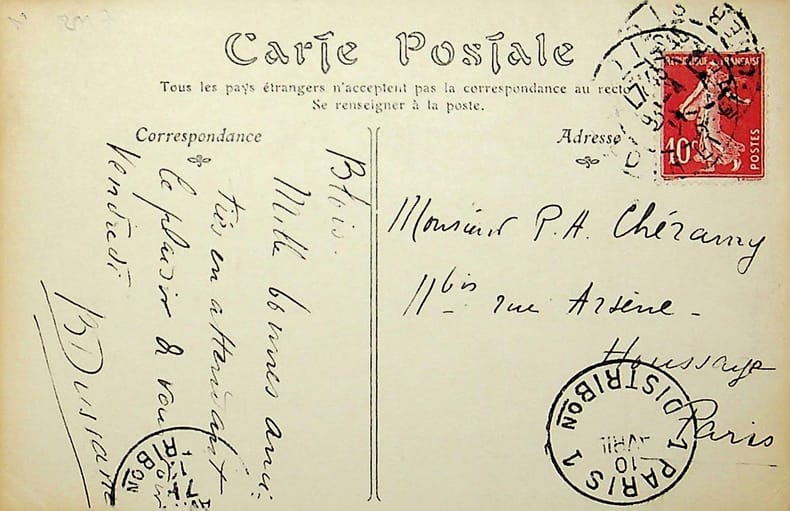 Carte Postale
Tous les pays étrangers n'acceptent pas la correspondance au recto
Se renseigner à la poste.
Correspondance
Adresse
RÉPUBLIQUE FRANÇAISE
10c
POSTES
Blois.
Mille bonnes ami-
tiés en attendant
le plaisir de vous
Vendredi
Monsieur P. A. Chéramy
11bis rue Arsène-
Houssaye
Paris
PARIS 1 DISTRIBON
10
1
RIBON